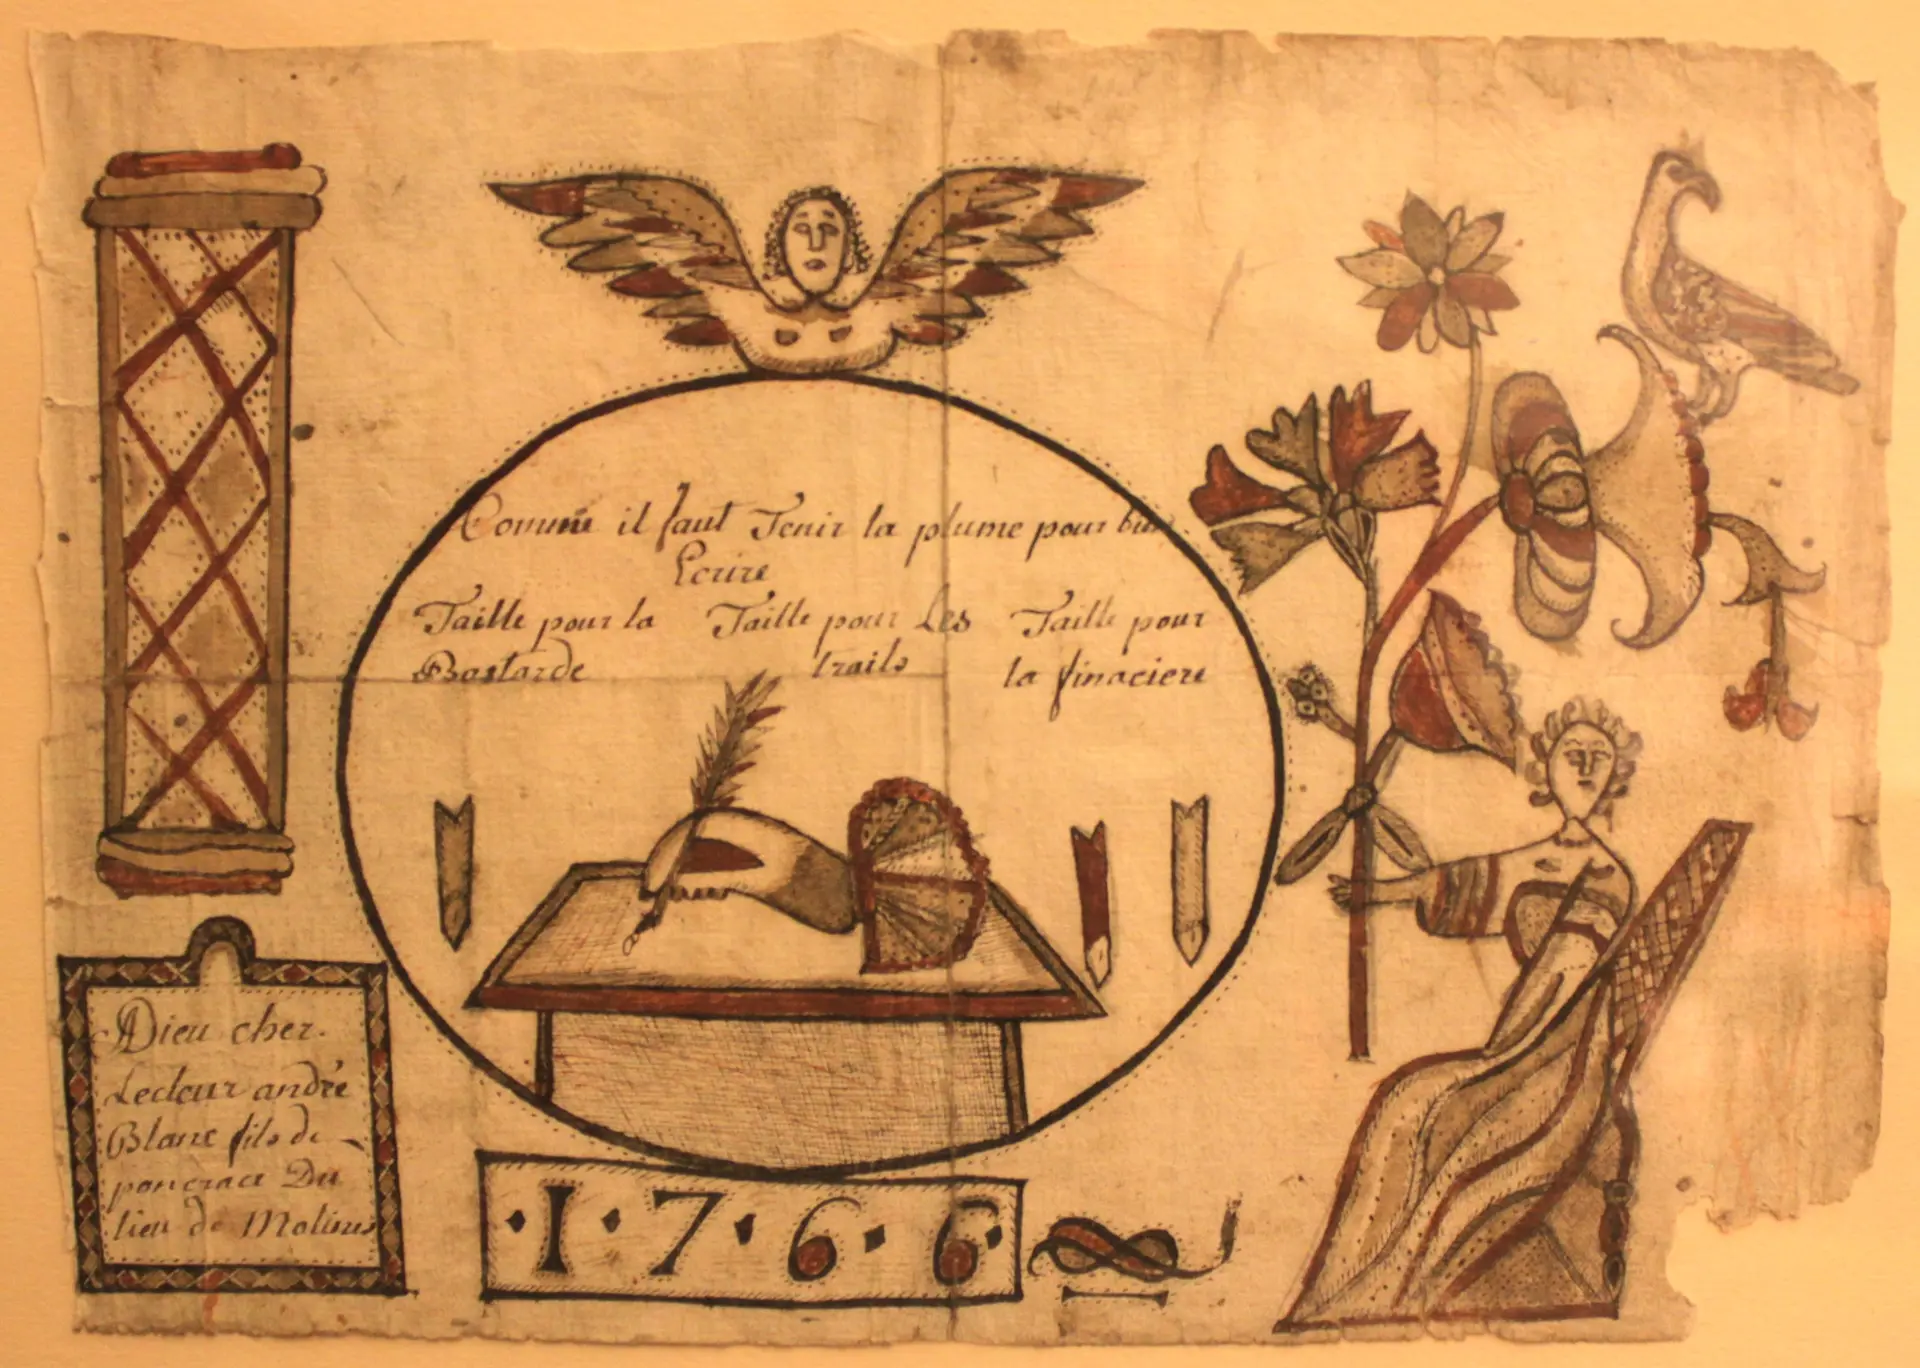 Comme il faut Tenir la plume pour bien
Ecrire
Taille pour la Bastarde
Taille pour Les traits
Taille pour la finaciere
ADieu cher
Lecteur andré
Blanc fils de
poncrace Du
lieu de Molines
1766